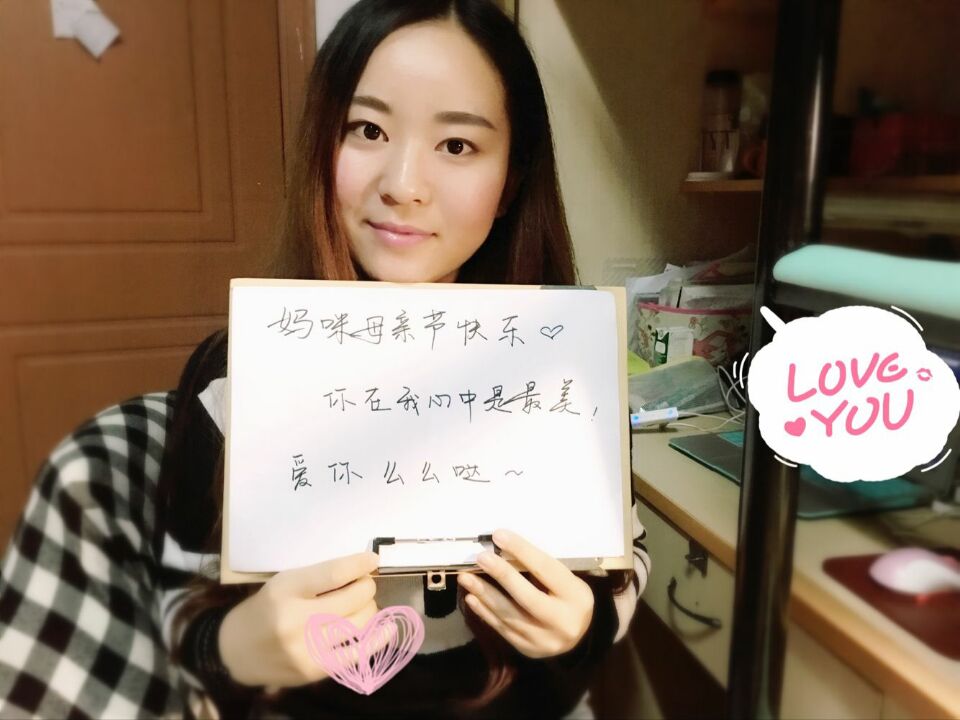 妈咪母亲节快乐♡
你在我心中是最美!
爱你么么哒~
LOVE
YOU